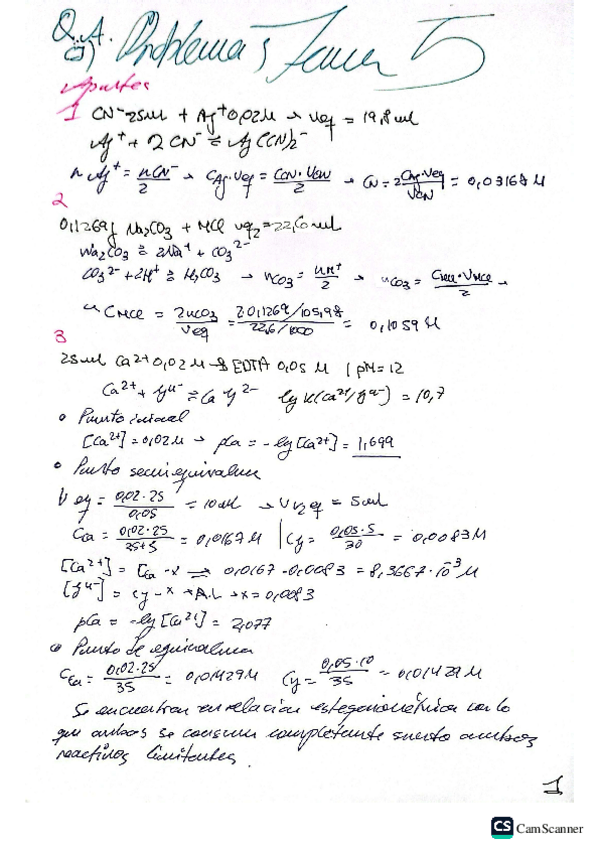 Q.A. Problemas Tema 5
a)
Apuntes
1 CN⁻ 25ml + Ag⁺ 0,02M → Veq = 19,8 ml
Ag⁺ + 2 CN⁻ ⇌ Ag(CN)₂⁻
nAg⁺ = nCN⁻/2 → CAg·Veq = CCN·VCN/2 → CN = 2CAg·Veq/VCN = 0,03168 M
2
0,1269g Na₂CO₃ + HCl veq₂ = 22,60ml
Na₂CO₃ ⇌ 2Na⁺ + CO₃²⁻
CO₃²⁻ + 2H⁺ ⇌ H₂CO₃ → nCO₃ = nH⁺/2 → nCO₃ = CHCl·VHCl/2 →
CHCl = 2nCO₃/Veq = 2·0,1269/105,98 / 22,6/1000 = 0,1059 M
3
25ml Ca²⁺ 0,02 M EDTA 0,05 M | pH = 12
Ca²⁺ + Y⁴⁻ ⇌ CaY²⁻ lg K(Ca²⁺/Y⁴⁻) = 10,7
• Punto inicial
[Ca²⁺] = 0,02M → pCa = -lg[Ca²⁺] = 1,699
• Punto semiequivalencia
Veq = 0,02·25/0,05 = 10ml → V1/2eq = 5ml
CCa = 0,02·25/25+5 = 0,0167M | Cy = 0,05·5/30 = 0,0083M
[Ca²⁺] = CCa - x ⇒ 0,0167 - 0,0083 = 8,3667·10⁻³ M
[Y⁴⁻] = Cy - x → R.L → x = 0,0083
pCa = -lg[Ca²⁺] = 2,077
• Punto de equivalencia
CCa = 0,02·25/35 = 0,01429M Cy = 0,05·10/35 = 0,01429M
Se encuentran en relación estequiométrica con lo
que ambos se consumen completamente siendo ambos
reactivos limitantes.
1
CS CamScanner